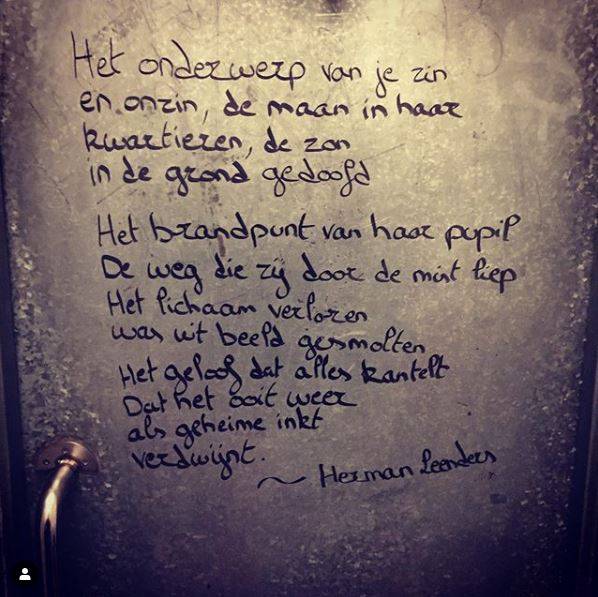 Het onderwerp van je zin
en onzin, de maan in haar
kwartieren, de zon
in de grond gedoofd
Het brandpunt van haar pupil
De weg die zij door de mist liep
Het lichaam verloren
was uit beeld gesmolten
Het geloof dat alles kantelt
Dat het ooit weer
als geheime inkt
verdwijnt.
~ Herman Leenders